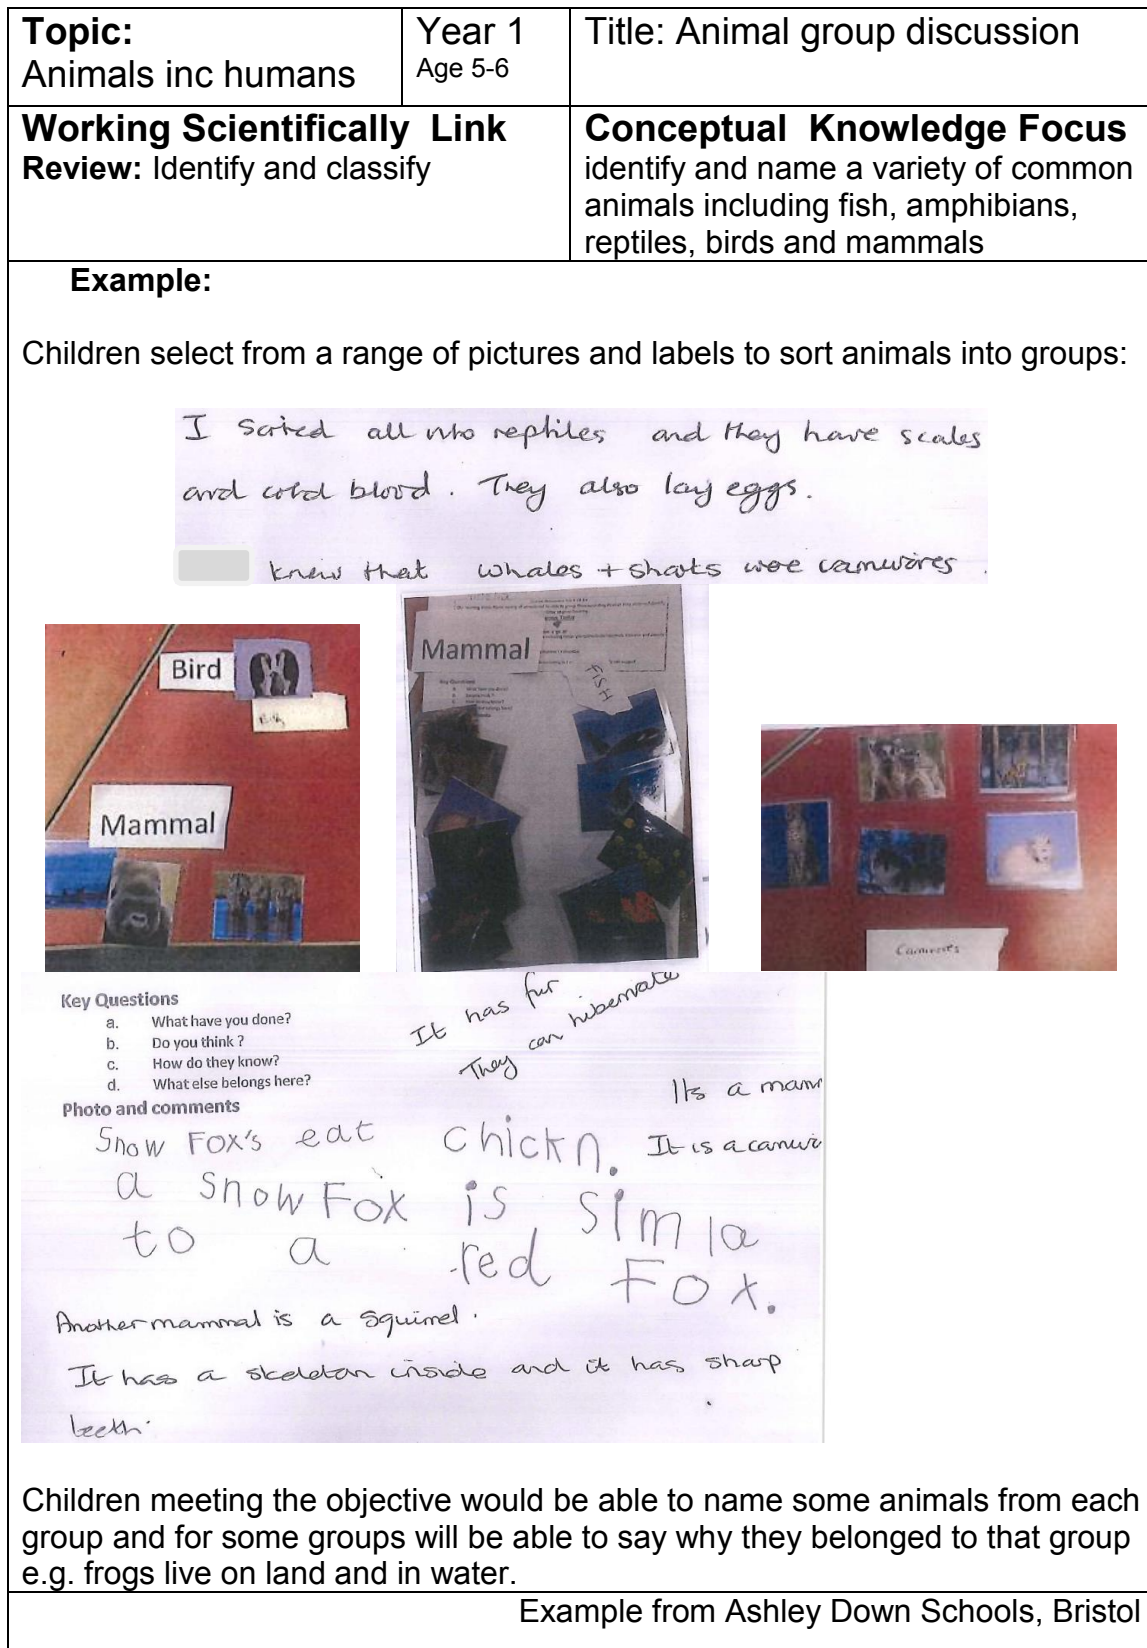 Topic:
Animals inc humans
Year 1
Age 5-6
Title: Animal group discussion
Working Scientifically Link
Review: Identify and classify
Conceptual Knowledge Focus
identify and name a variety of common
animals including fish, amphibians,
reptiles, birds and mammals
Example:
Children select from a range of pictures and labels to sort animals into groups:
I sorted all into reptiles and they have scales
and cold blood. They also lay eggs.
knew that whales + sharks were carnivores.
Bird
Mammal
Mammal
FISH
Key Questions
Carnivores
Key Questions
a. What have you done?
b. Do you think ?
c. How do they know?
d. What else belongs here?
Photo and comments
It has fur
They can hibernate
Its a mam
It is a carniv
Snow Fox's eat chickn.
a snow Fox is simla
to a red Fox.
Another mammal is a squirrel.
It has a skeleton inside and it has sharp
teeth.
Children meeting the objective would be able to name some animals from each
group and for some groups will be able to say why they belonged to that group
e.g. frogs live on land and in water.
Example from Ashley Down Schools, Bristol